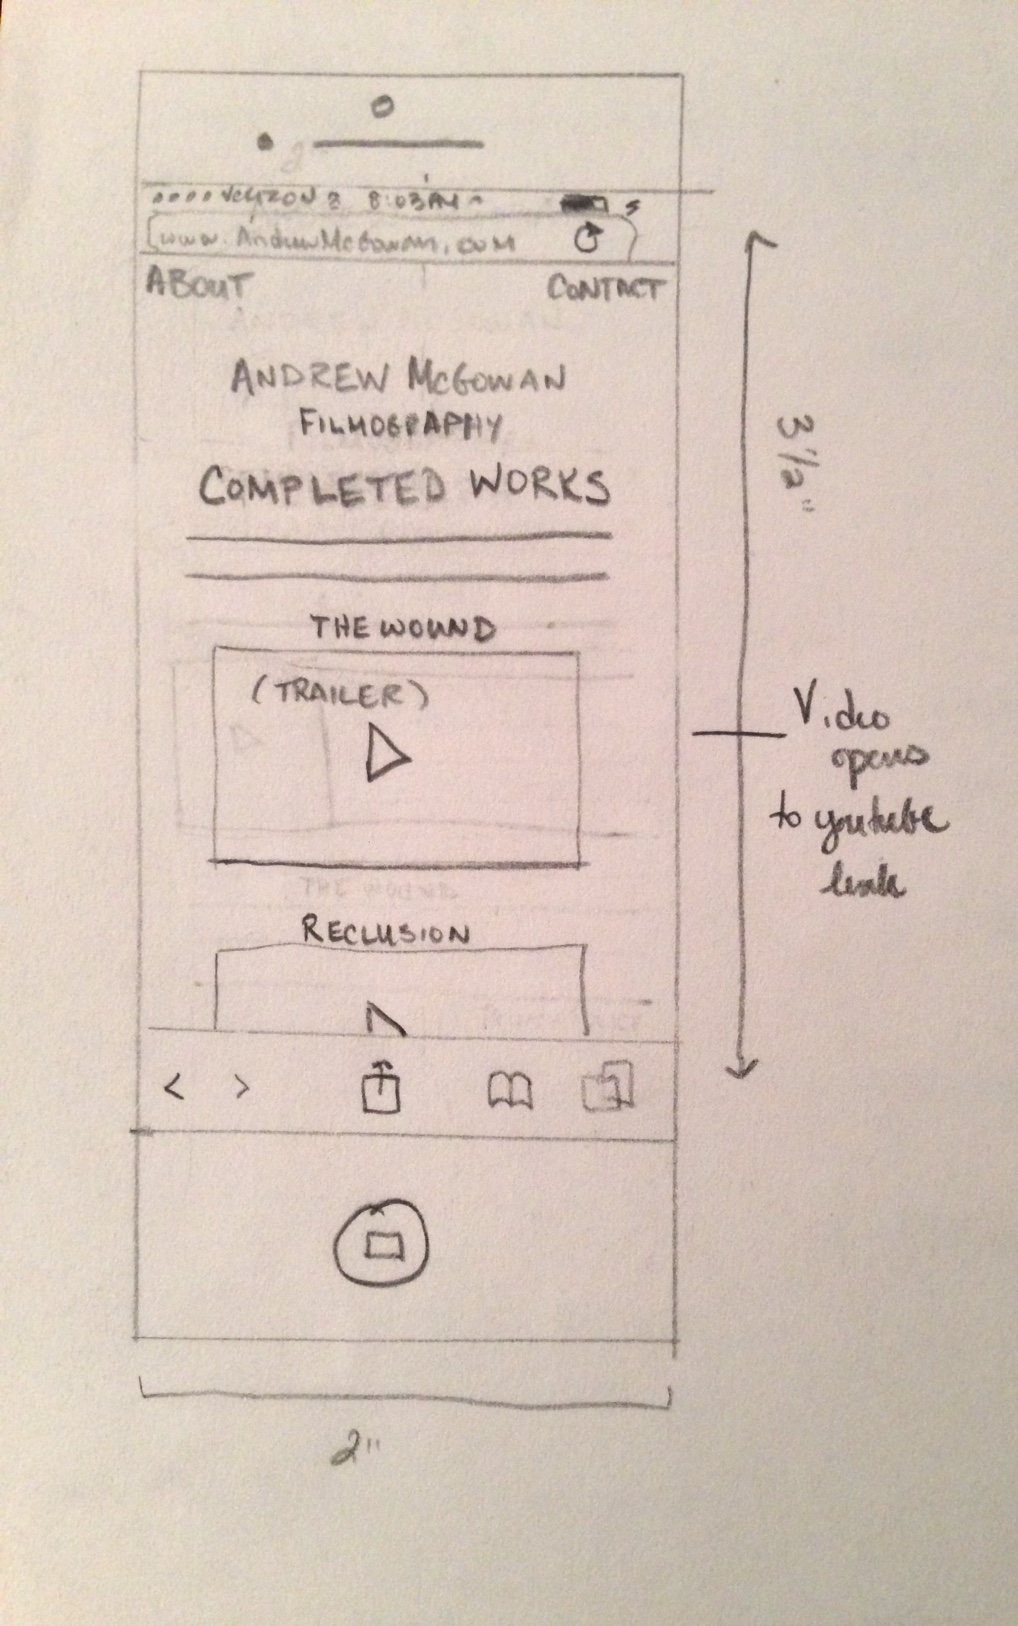 VERIZON 8:03AM
www.AndrewMcGowan.com
ABOUT CONTACT
ANDREW MCGOWAN
FILMOGRAPHY
COMPLETED WORKS
THE WOUND
(TRAILER)
RECLUSION
3 1/2"
Video
opens
to youtube
link
2"